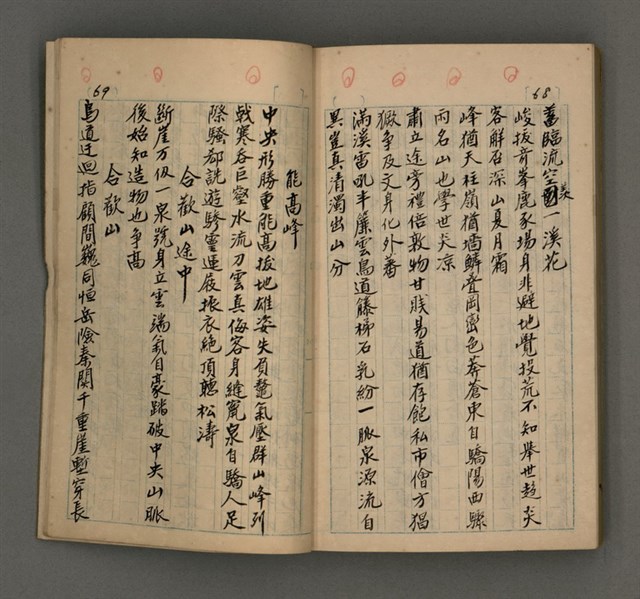 68
舊臨流空美一溪花
峻拔奇峯鹿豕場身非避地覺投荒不知舉世趨炎
客解在深山夏月霜
峰猶天柱嶺猶墙鱗疊岡巒色莽蒼東自驕陽西驟
雨名山也學世炎涼
肅立途旁禮倍敦物甘賤易道猶存飽私市儈方猖
獗争及文身化外蕃
滿溪雷吼半簾雲鳥道籐梯石乳紛一脈泉源流自
異豈真清濁出山分
69
能高峰
中央形勝重能高拔地雄姿失負鼇氣壓群山峰列
戟寒吞巨壑水流刀雲真侮客身縫窵泉自驕人足
際騷都説遊驂靈運屐振衣絶頂聽松濤
合歡山途中
斷崖万仭一泉號身立雲端氣自豪踏破中央山脈
後始知造物也争高
合歡山
鳥道迂迴指顧間巍同恒岳險秦關千重崖塹穿長